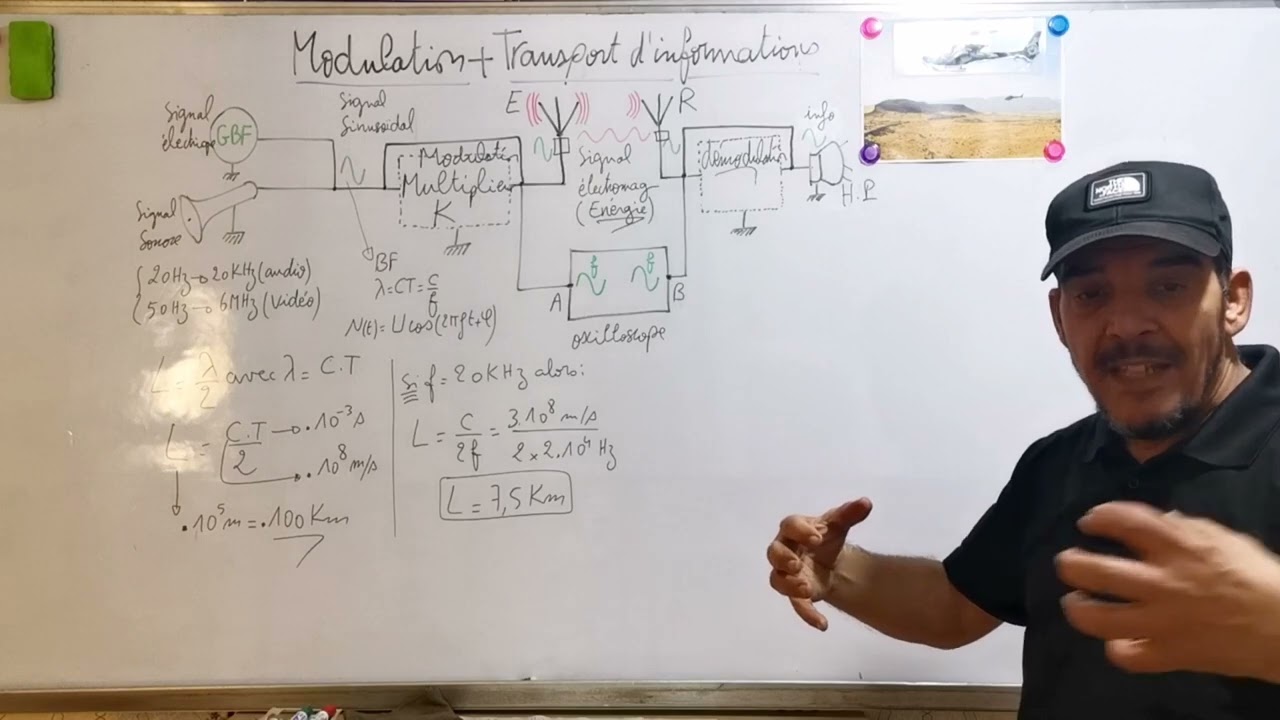 Modulation + Transport d'informations
Signal
électrique
GBF
Signal
Sinusoidal
E
R
info
Modulation
Multiplieur
K
Signal
électromag-
(Energie)
démodulation
H.P
Signal
Sonore
BF
λ=CT=C/f
A
B
oscilloscope
20Hz → 20KHz (audio)
50Hz → 6MHz (Vidéo)
N(t)= U cos(2πft+φ)
L = λ/2 avec λ = C.T
L = C.T/2
.10⁻³s
.10⁸ m/s
.10⁵m = .100Km
Si f = 20KHz alors:
L = C/2f = 3.10⁸ m/s / 2 × 2.10⁴ Hz
L = 7,5 Km
THE
NORTH
FACE